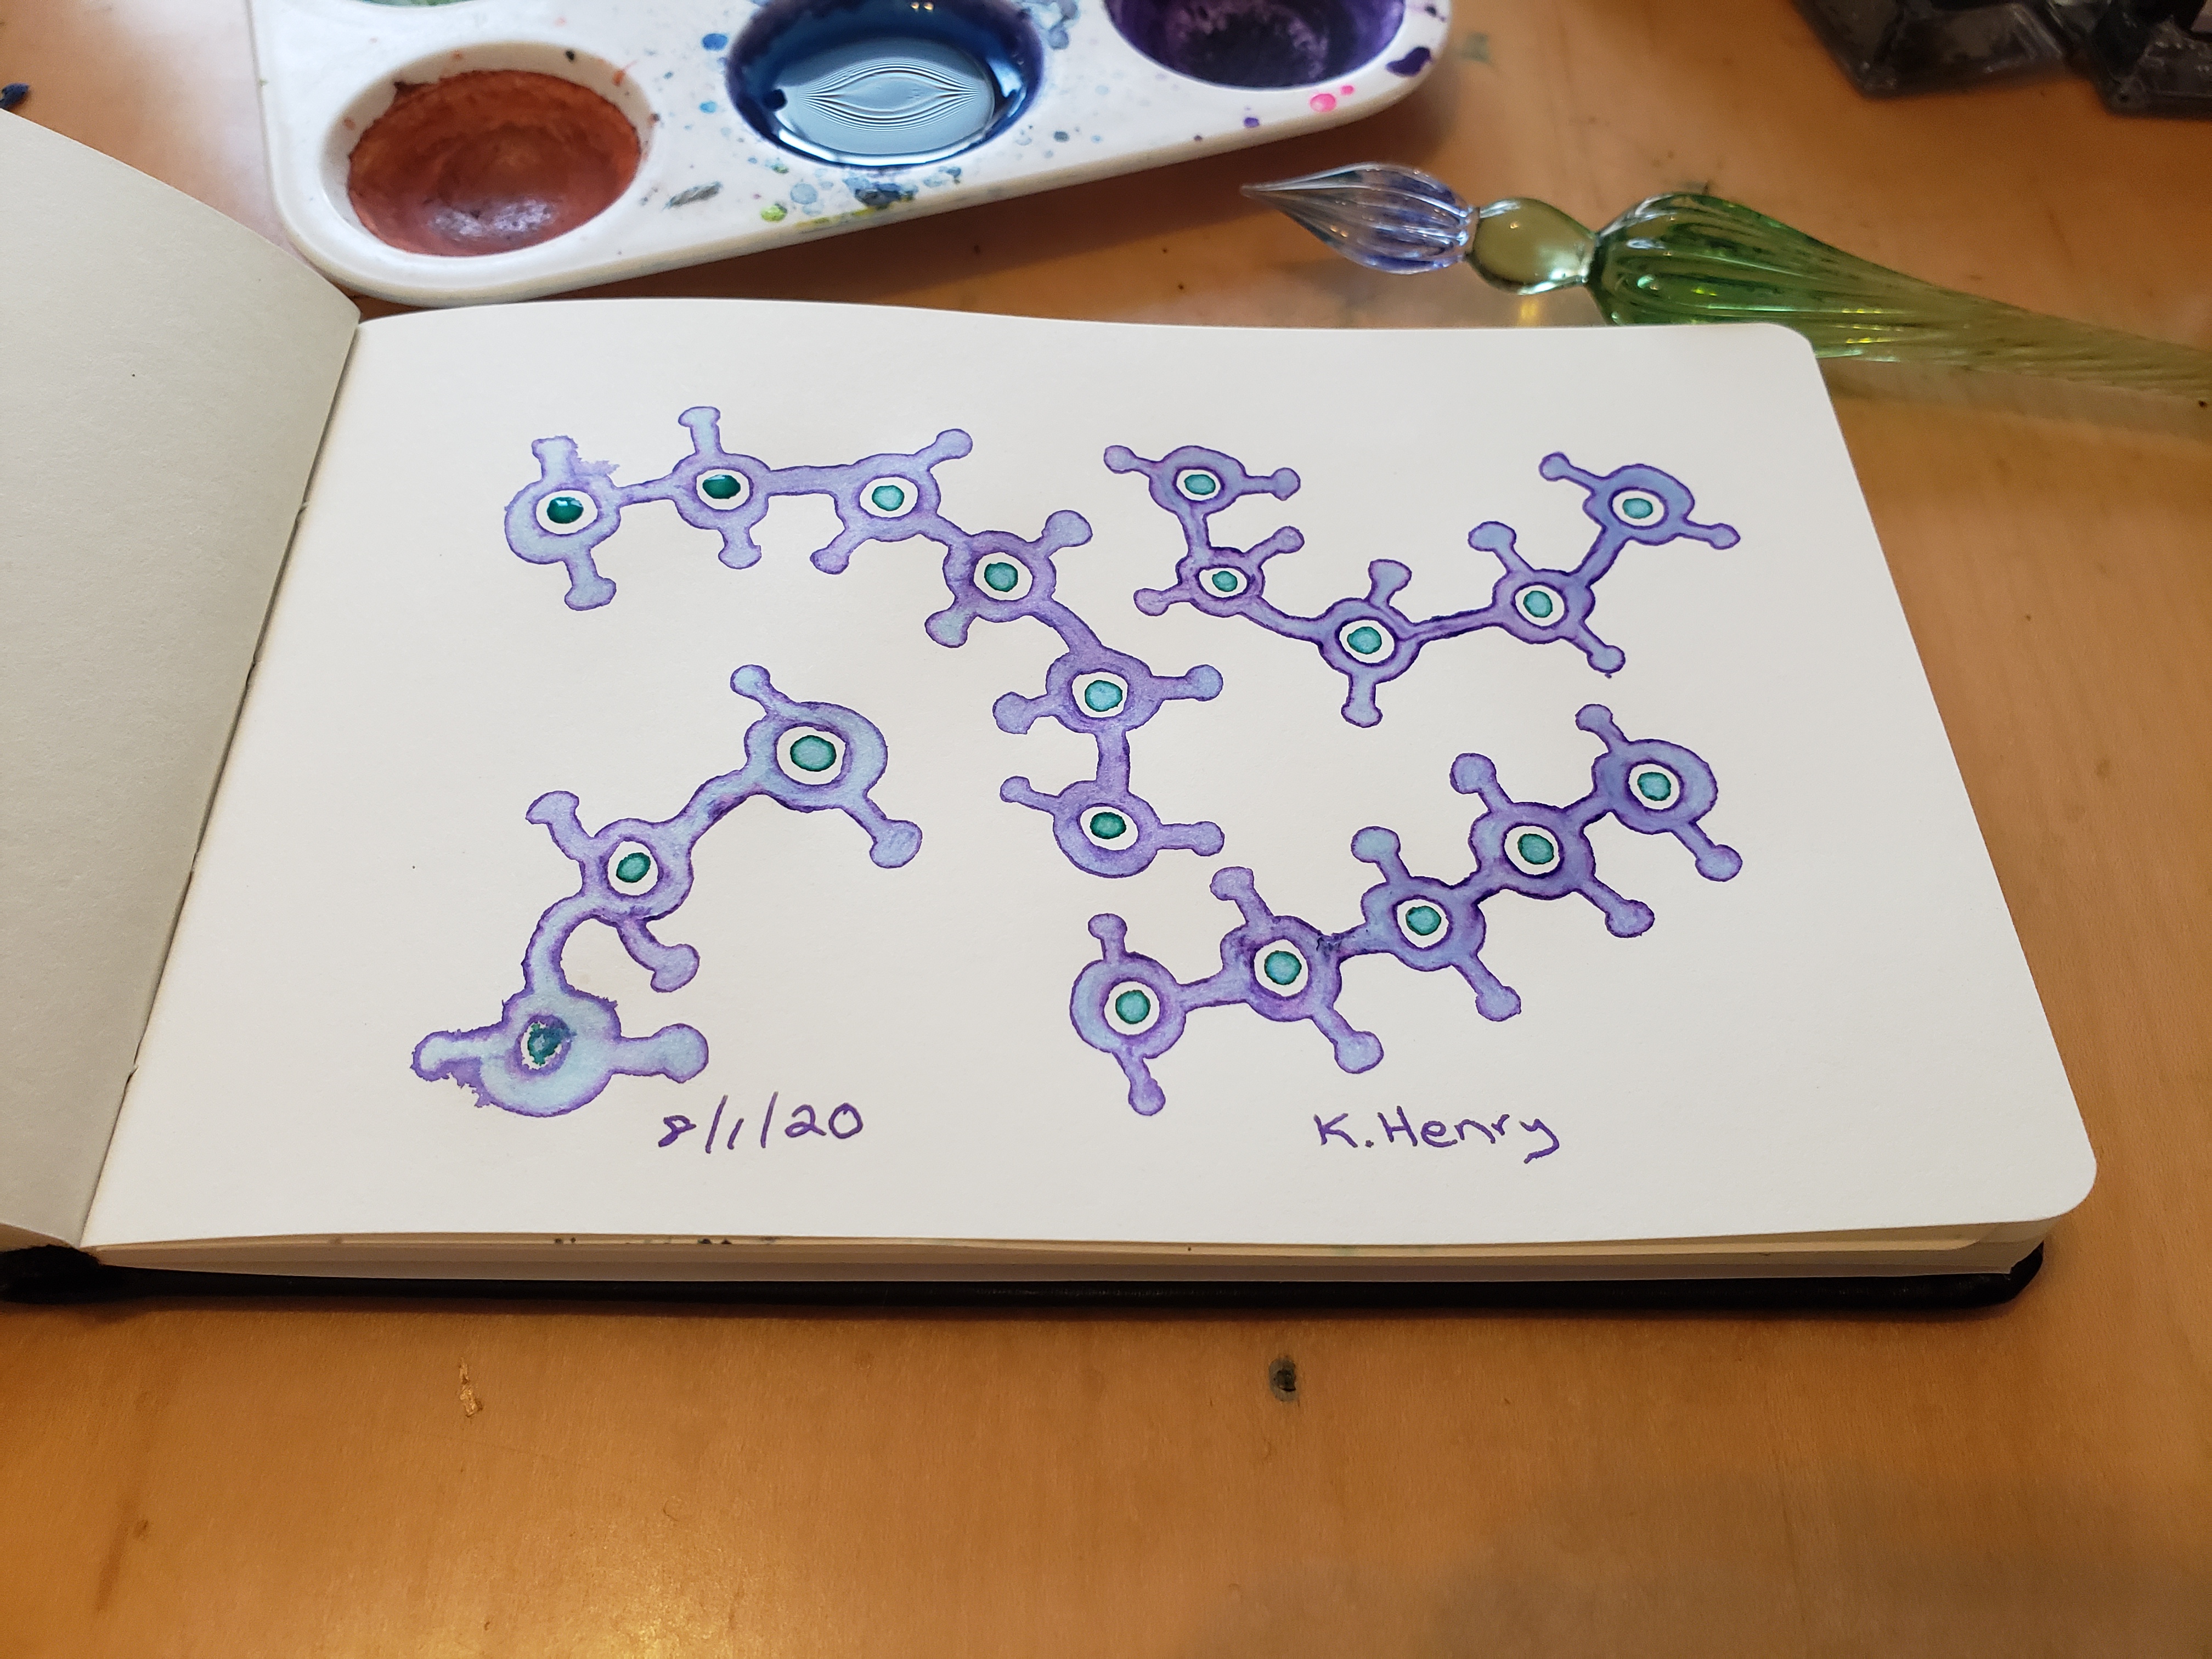 8/1/20
K. Henry